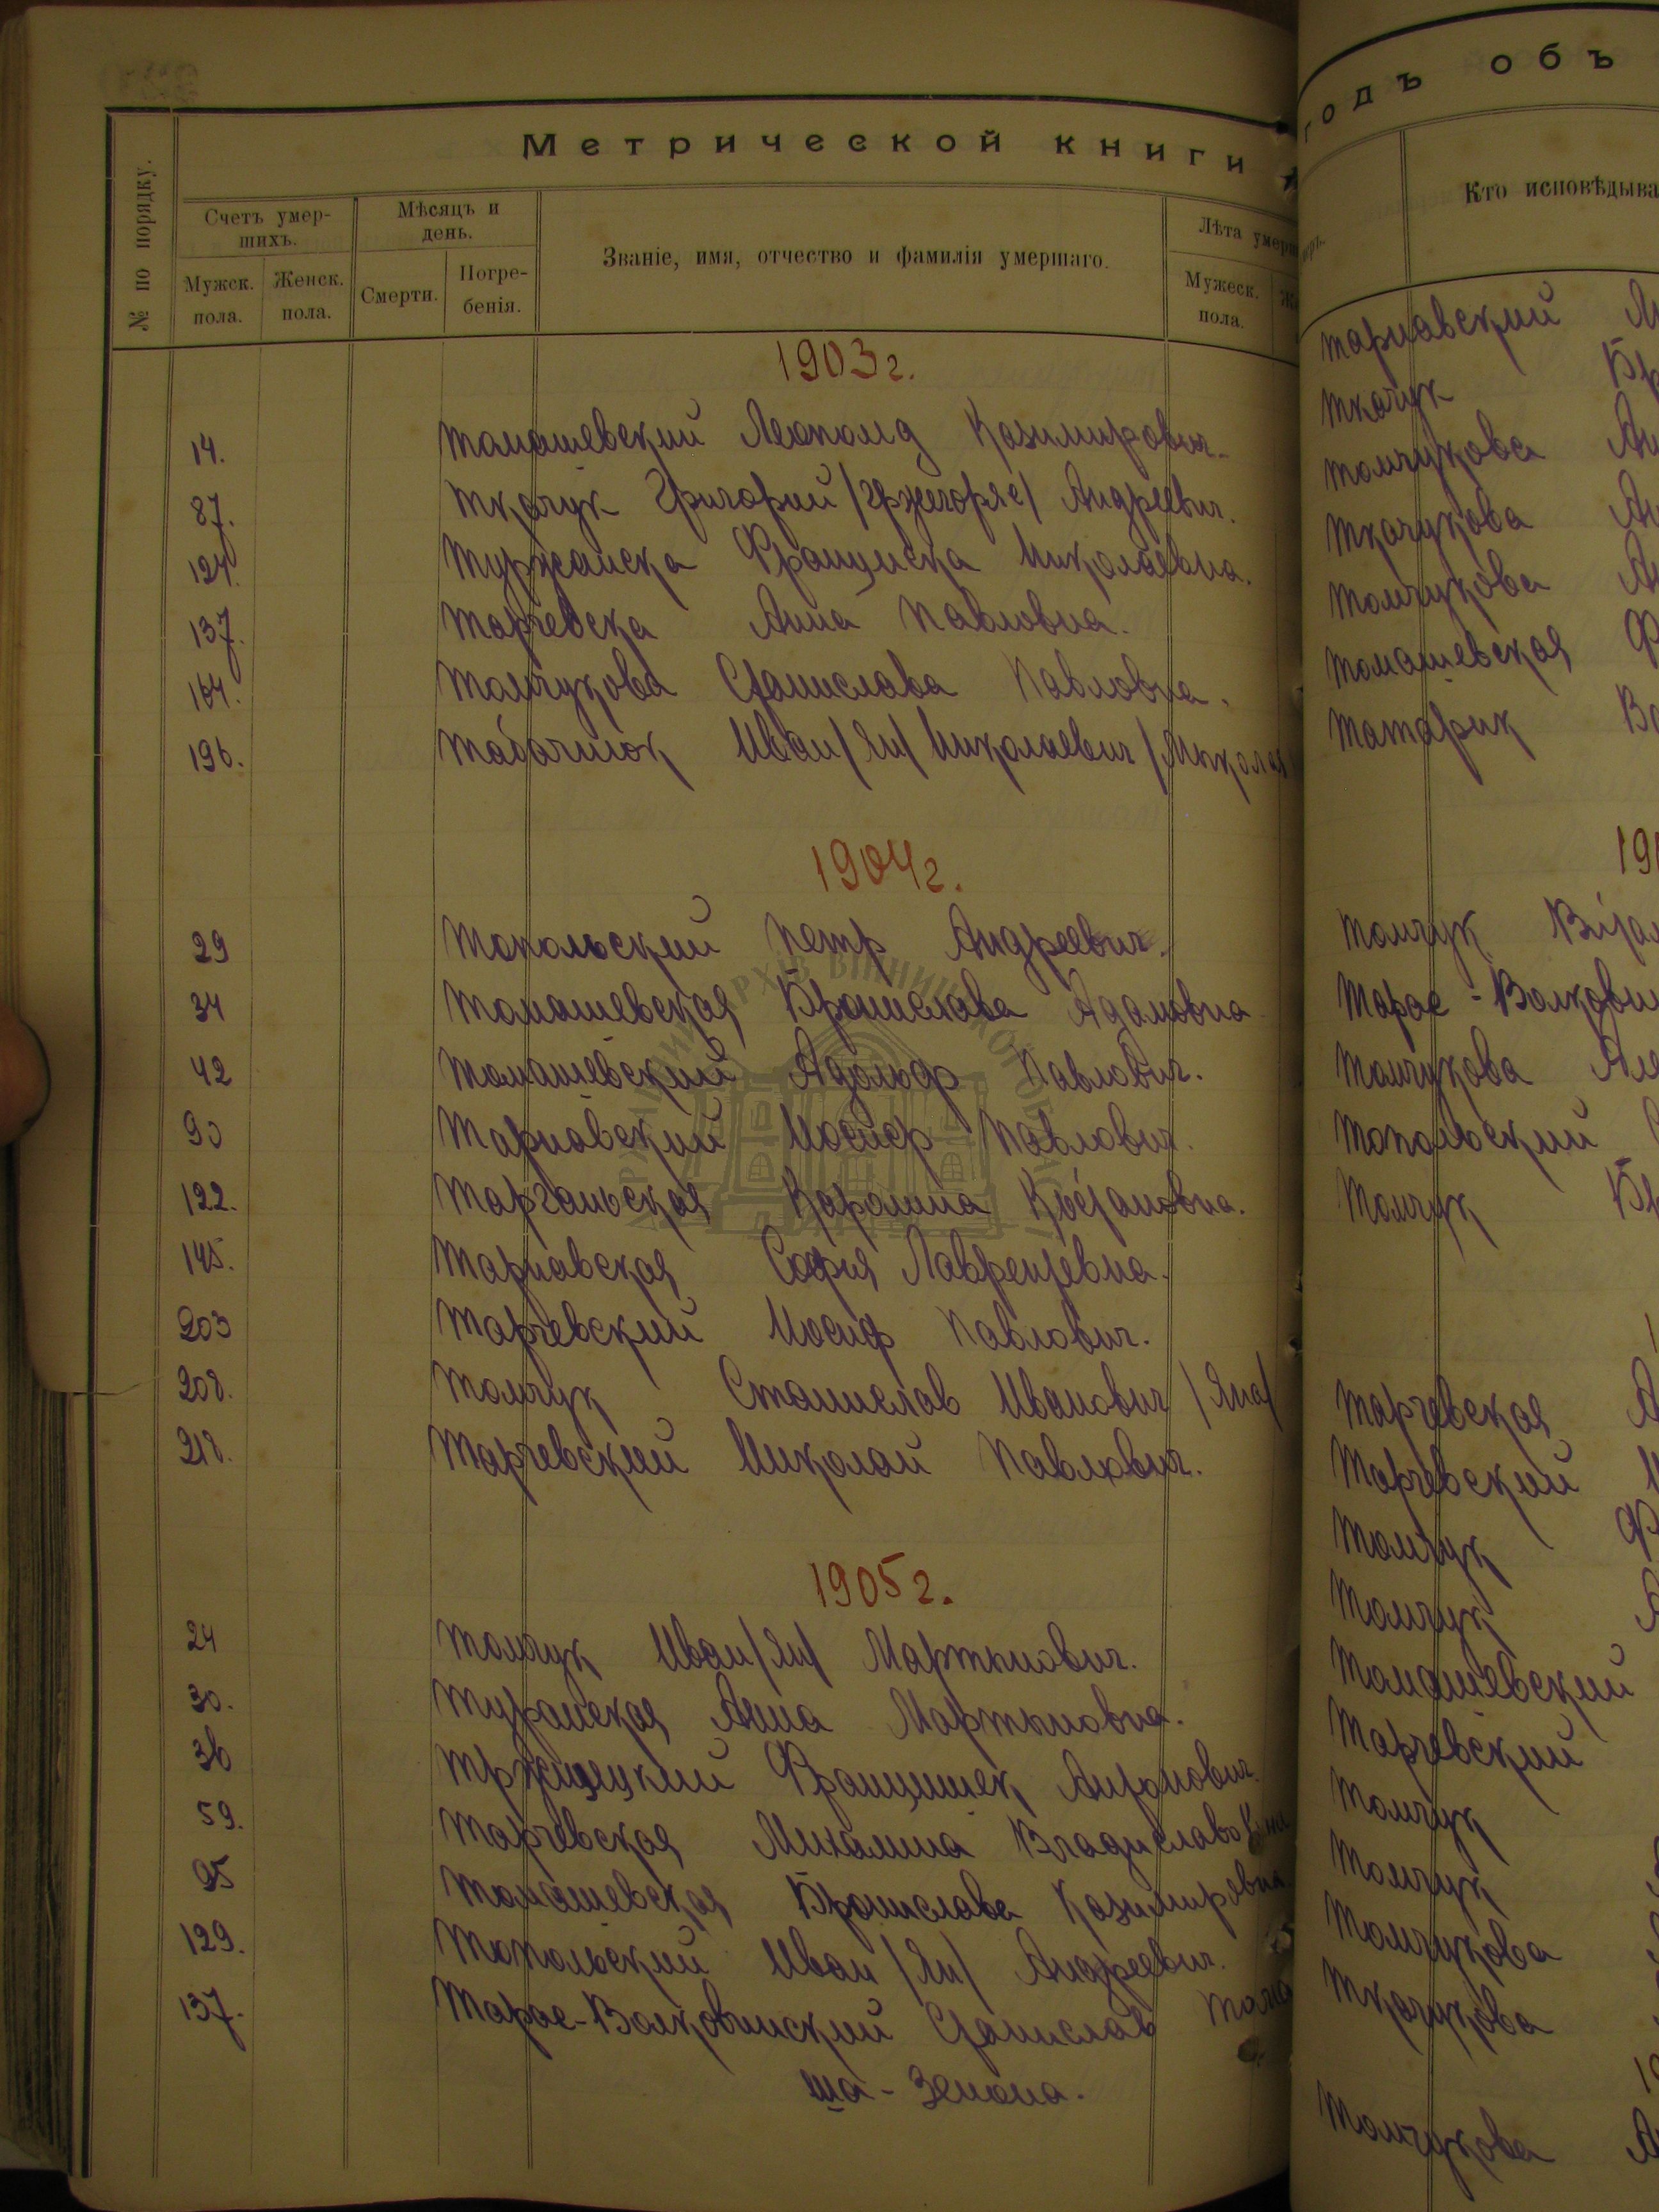 Метрической книги
годъ объ
№ по порядку.
Счетъ умер-
шихъ.
Мѣсяцъ и
день.
Званіе, имя, отчество и фамилія умершаго.
Лѣта умерш
Мужск.
пола.
Женск.
пола.
Смерти.
Погре-
бенія.
Мужеск.
пола.
Кто исповѣдыва
1903 г.
14. Томашевский Леопольд Казимирович.
87. Ткачук Григорий /Гржегорже/ Андреевич.
124. Туржанска Франциска Николаевна.
137. Торчевска Анна Павловна.
164. Томчукова Станислава Павловна.
196. Табачнюк Иван /Ян/ Николаевич /Миколая
1904 г.
29 Топольский Петр Андреевич.
34 Томашевская Бронислава Адамовна
42 Томашевский Адольф Павлович.
90 Тарнавский Иосиф Павлович.
122. Каролина
145. Тарнавская София Лаврентевна.
203 Торчевский Иосиф Павлович.
208. Томчук Станислав Иванович /Яна/
218. Торчевский Николай Павлович.
1905 г.
24 Томчук Иван /Ян/ Мартынович.
30. Туранская Анна Мартыновна.
36 Тржецецкий Францишек Антонович.
59. Торчевская Михалина Владиславовна
95 Томашевская Бронислава Казимировна
129. Топольский Иван /Ян/ Андреевич.
137. Тарас-Волковинский Станислав Тома
ша - Зенона.
Тарнавский
Ткачук
Томчукова
Ткачукова
Томчукова
Томашевская
Татарик
Томчук
Тарас-Волкови
Томчукова
Топольский
Томчук
Торчевская
Торчевский
Томчук
Томчук
Томашевский
Торчевский
Томчук
Томчук
Томчукова
Ткачукова
Томчукова